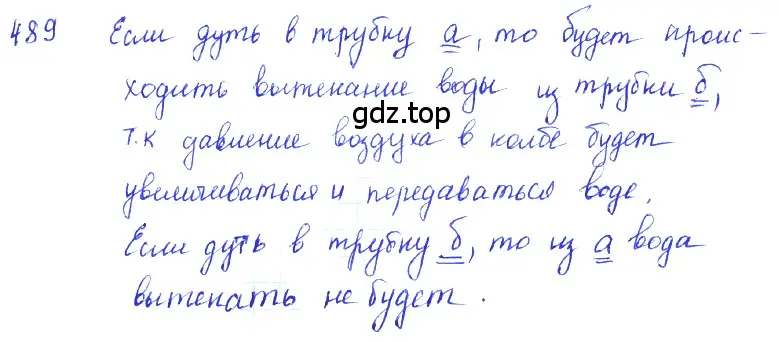 489 Если дуть в трубку а, то будет проис-
ходить вытекание воды из трубки б,
gdz.top
т.к давление воздуха в колбе будет
увеличиваться и передаваться воде.
Если дуть в трубку б, то из а вода
вытекать не будет.